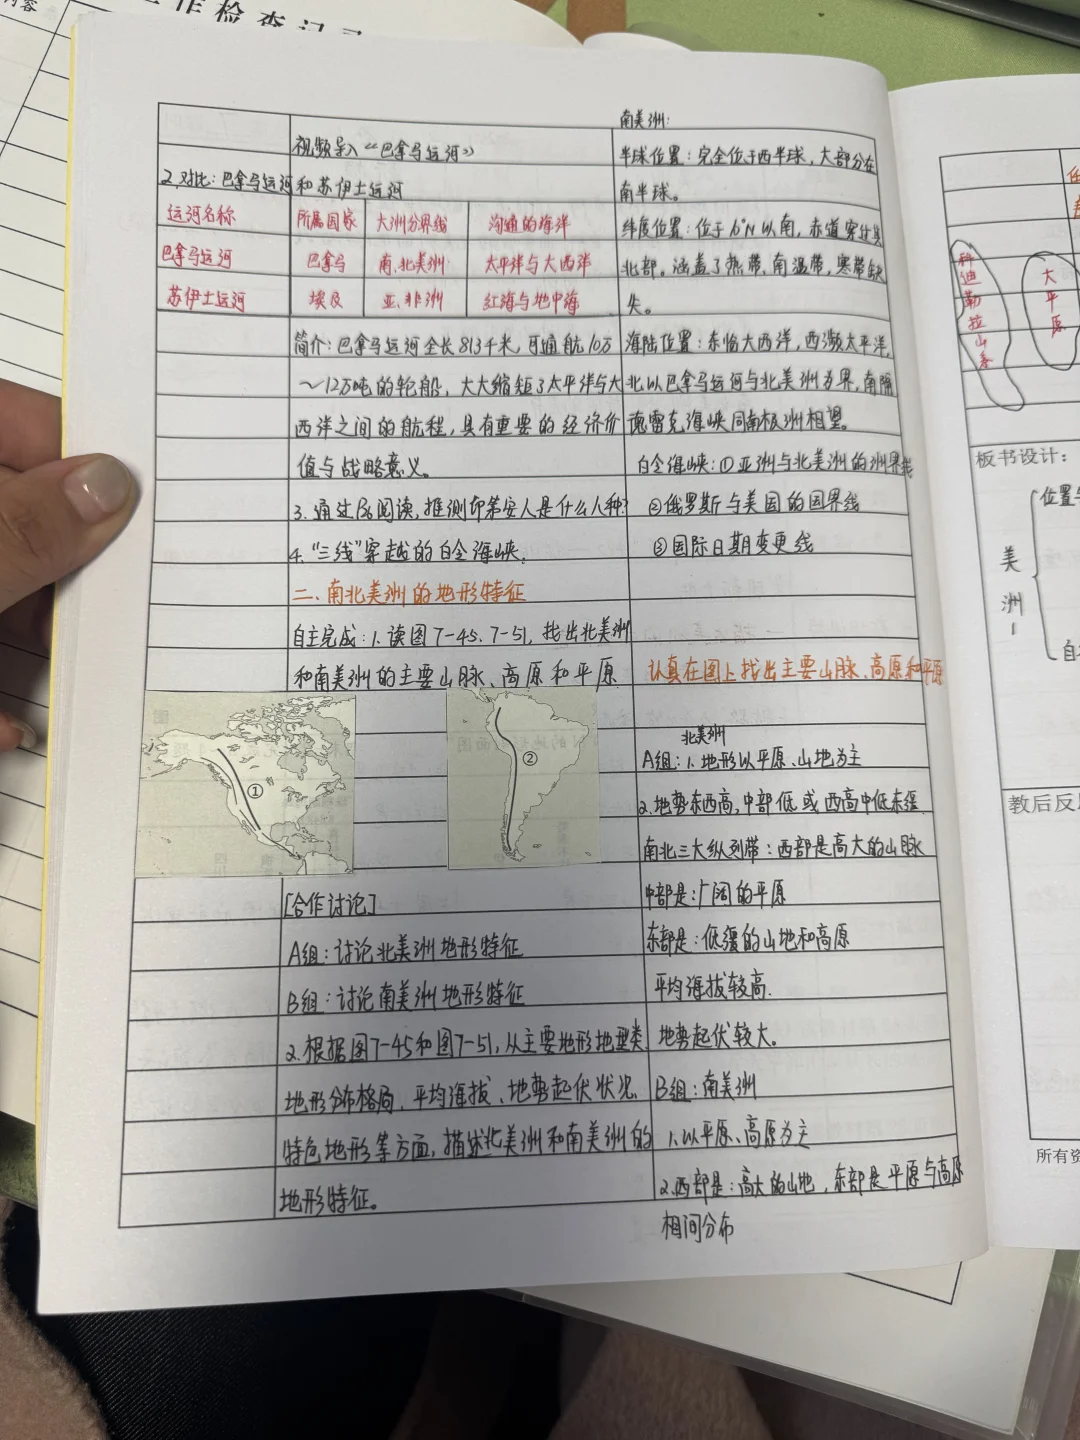 作检查记录
内容
视频导入“巴拿马运河”
2.对比:巴拿马运河和苏伊士运河
运河名称 所属国家 大洲分界线 沟通的海洋
巴拿马运河 巴拿马 南、北美洲 太平洋与大西洋
苏伊士运河 埃及 亚、非洲 红海与地中海
简介:巴拿马运河全长81.3千米,可通航10万
~12万吨的轮船,大大缩短了太平洋与大
西洋之间的航程,具有重要的经济价
值与战略意义。
3.通过阅读,推测印第安人是什么人种?
4.“三线”穿越的白令海峡.
二、南北美洲的地形特征
自主完成:1.读图7-45、7-51,找出北美洲
和南美洲的主要山脉、高原和平原
①
②
[合作讨论]
A组:讨论北美洲地形特征
B组:讨论南美洲地形特征
2.根据图7-45和图7-51,从主要地形地型类
地形分布格局、平均海拔、地势起伏状况
特色地形等方面,描述北美洲和南美洲的
地形特征。
南美洲:
半球位置:完全位于西半球,大部分在
南半球。
纬度位置:位于10°N以南,赤道穿过其
北部。涵盖了热带、南温带,寒带缺
失。
海陆位置:东临大西洋,西濒太平洋,
北以巴拿马运河与北美洲为界,南隔
德雷克海峡同南极洲相望。
白令海峡:①亚洲与北美洲的洲界线
②俄罗斯与美国的国界线
③国际日期变更线
认真在图上找出主要山脉、高原和平原
北美洲
A组:1.地形以平原、山地为主
2.地势东西高,中部低或西高中低东缓
南北三大纵列带:西部是高大的山脉
中部是:广阔的平原
东部是:低缓的山地和高原
平均海拔较高.
地势起伏较大。
B组:南美洲
1.以平原、高原为主
2.西部是:高大的山地,东部是平原与高原
相间分布
科迪勒拉山系
大平原
板书设计:
美洲
教后反
所有资